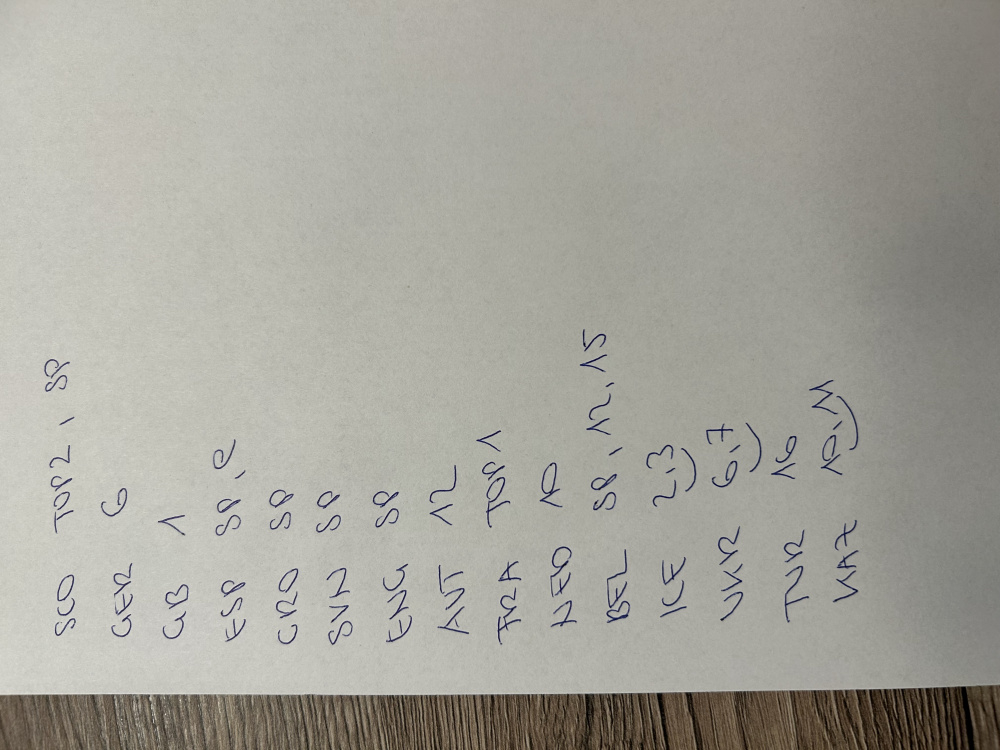 SCO TOP 2, SP
GER 6
GB 1
ESP SP, C
CRO SP
SVN SP
ENG SP
AUT 12
FRA TOP 1
NED 10
BEL SP, 12, 15
ICE 2,3
UKR 6,7
TUR 16
KAZ 10,11